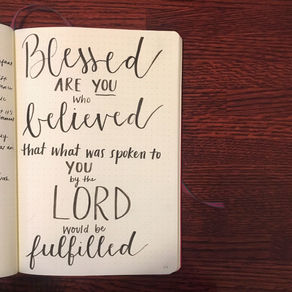 Blessed
ARE YOU
who
believed
that what was spoken to
YOU
by the
LORD
would be
fulfilled